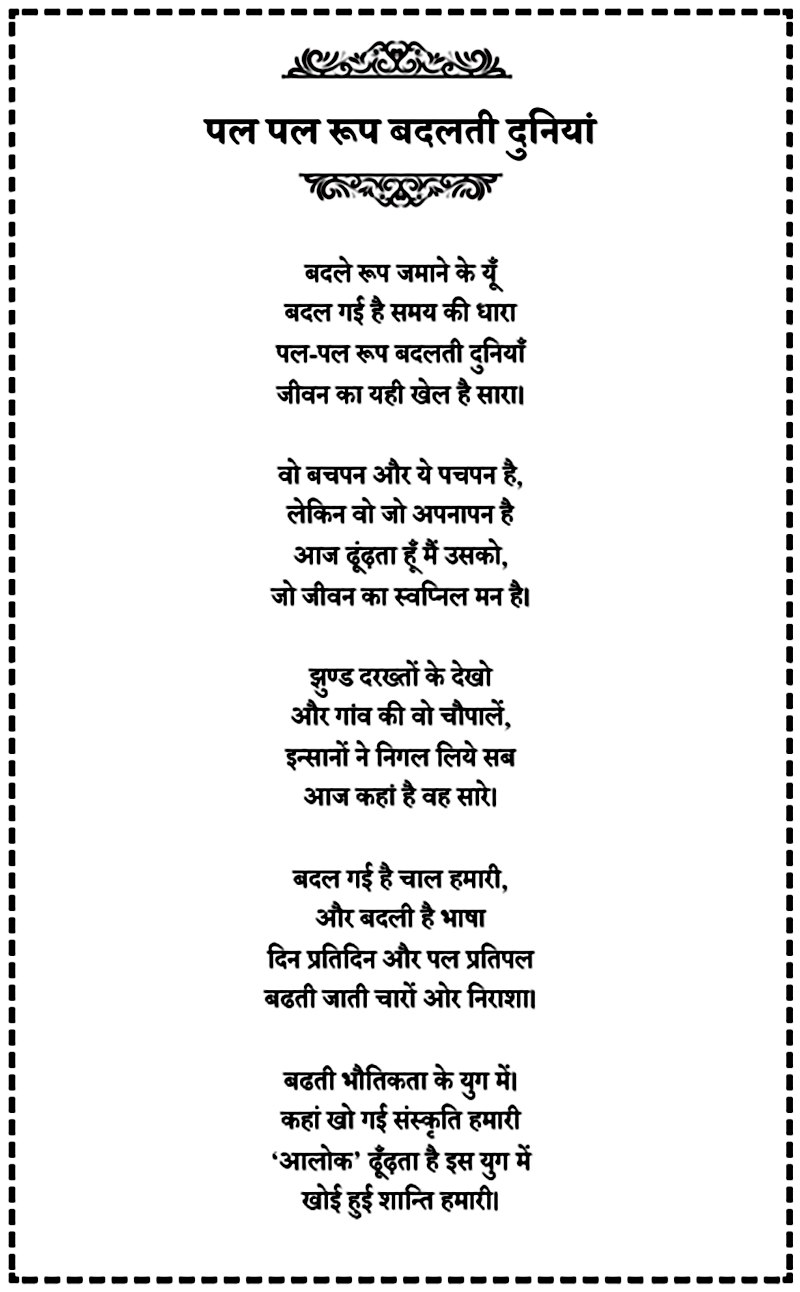 पल पल रूप बदलती दुनियां
बदले रूप जमाने के यूँ
बदल गई है समय की धारा
पल-पल रूप बदलती दुनियाँ
जीवन का यही खेल है सारा।
वो बचपन और ये पचपन है,
लेकिन वो जो अपनापन है
आज ढूंढ़ता हूँ मैं उसको,
जो जीवन का स्वप्निल मन है।
झुण्ड दरख्तों के देखो
और गांव की वो चौपालें,
इन्सानों ने निगल लिये सब
आज कहां है वह सारे।
बदल गई है चाल हमारी,
और बदली है भाषा
दिन प्रतिदिन और पल प्रतिपल
बढती जाती चारों ओर निराशा।
बढती भौतिकता के युग में।
कहां खो गई संस्कृति हमारी
‘आलोक’ ढूँढ़ता है इस युग में
खोई हुई शान्ति हमारी।